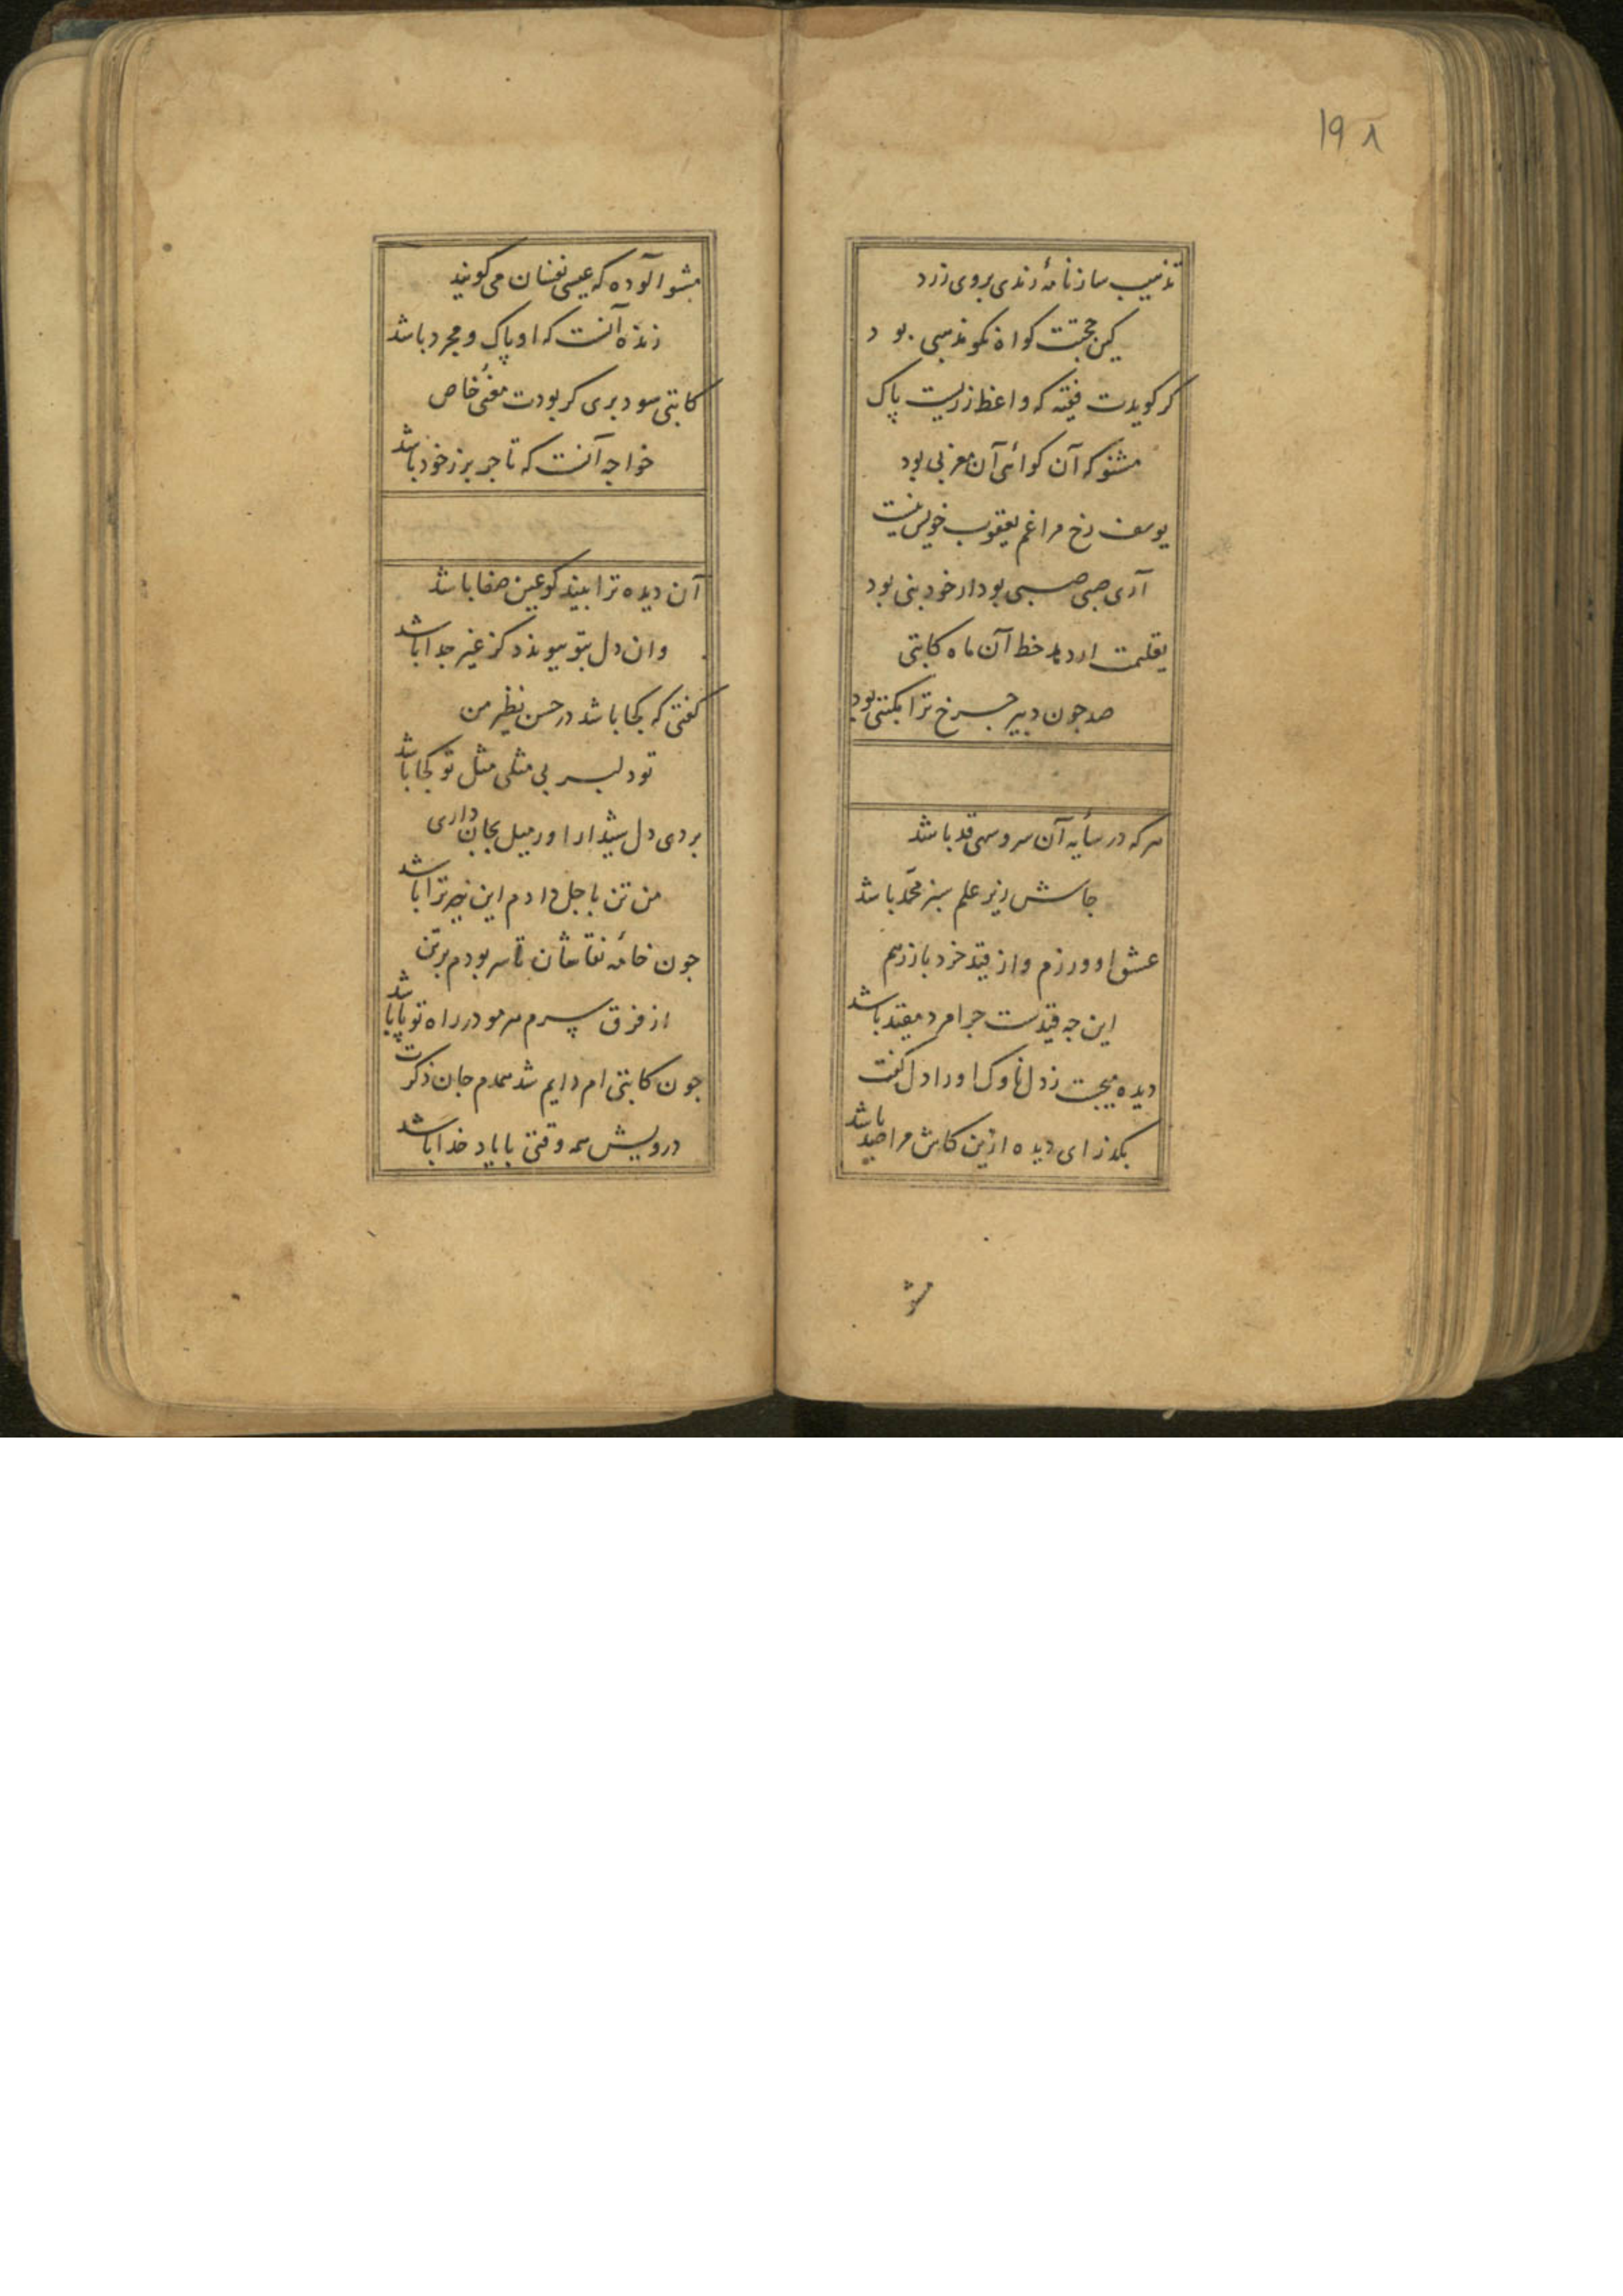 ۱۹۸
تذهیب ساز نامهٔ رندی بروی زرد
کین حجتت کواه نکو مذهبی بود
کر کویدت فقیه که واعظ زریست پاک
مشنو که آن کوائی آن مغربی بود
یوسف رخ مرا غم یعقوب خویش نیست
آری صبی صبی بود ار خود نبی بود
خط آن ماه کاتبی
صد جون دبیر جرخ ترا مکتبی بود
هرکه در سایه آن سرو سهی قد باشد
جاش زیر علم سبز محمد باشد
عشق او ورزم و از قید خرد باز رهم
این جه قیدست جرا مرد مقید باشد
دیده میجست ز دل ناوک او را دل کفت
بکذر ای دیده ازین کاش مرا صد باشد
مشو
مشو آلوده که عیسی نفسان می کویند
زنده آنست که او پاک و مجرد باشد
کاتبی سود بری کر بودت معنی خاص
خواجه آنست که تاجر بزر خود باشد
آن دیده ترا بیند کو عین صفا باشد
وان دل بتو پیوندد کز غیر جدا باشد
کفتی که کجا باشد در حسن نظیر من
تو دلبر بی مثلی مثل تو کجا باشد
بردی دل شیدا را ور میل بجان داری
من تن باجل دادم این نیز ترا باشد
جون خامه نقاشان تا سر بودم بر تن
از فرق سرم هر مو در راه تو پا باشد
جون کاتبی ام دایم شد همدم جان ذکرت
درویش همه وقتی با یاد خدا باشد